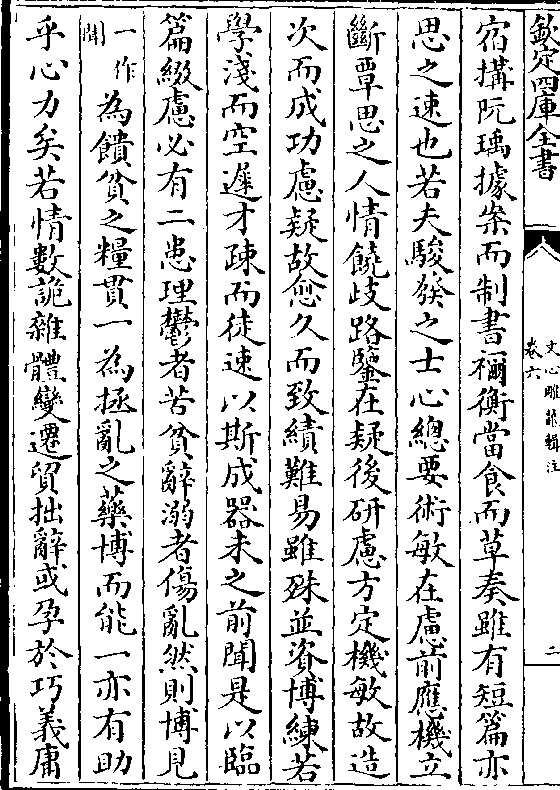 欽定四庫全書
文心雕龍輯注
卷六
二
宿搆阮瑀據案而制書禰衡當食而草奏雖有短篇亦
思之速也若夫駿發之士心總要術敏在慮前應機立
斷覃思之人情饒歧路鑒在疑後研慮方定機敏故造
次而成功慮疑故愈久而致績難易雖殊並資博練若
學淺而空遲才疎而徒速以斯成器未之前聞是以臨
篇綴慮必有二患理鬱者苦貧辭溺者傷亂然則博見
一作
聞
為饋貧之糧貫一為拯亂之藥博而能一亦有助
乎心力矣若情數詭雜體變遷貿拙辭或孕於巧義庸